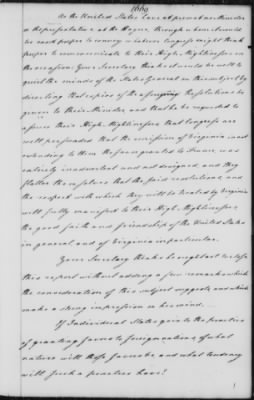 1669
As the United States have at present no Minister
or Representative at the Hague, through whom it would
be most proper to convey or return Congress might think
proper to communicate to their High Mightinesses on
the occasion; Your Secretary thinks it would be well to
quiet the minds of the States General on the subject by
directing that copies of the aforegoing Resolutions be
given to their Minister, and that he be requested to
assure their High Mightinesses that Congress are
well persuaded that the omission of Virginia in not
extending to them the favor granted to France, was
entirely inadvertent and not designed, and they
flatter themselves that the said resolutions, and
the respect with which they will be treated by Virginia
will fully manifest to their High Mightinesses,
the good faith and friendship of the United States
in general and of Virginia in particular.
Your Secretary thinks he ought not to close
this report without adding a few remarks which
the consideration of this subject suggests and which
make a strong impression on his mind.
If Individual States go into the practice
of granting favors to foreign nations, of what
nature will those favors be and what tendency
will such a practice have?